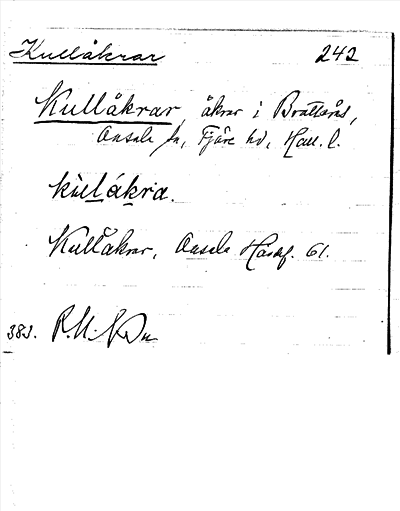 Kullåkrar 242
Kullåkrar, åkrar i Brattås,
Onsala sn, Fjäre hd, Hall. l.
kùl̲ák̲ra.
Kullåkrar, Onsala Handf. 61.
383.